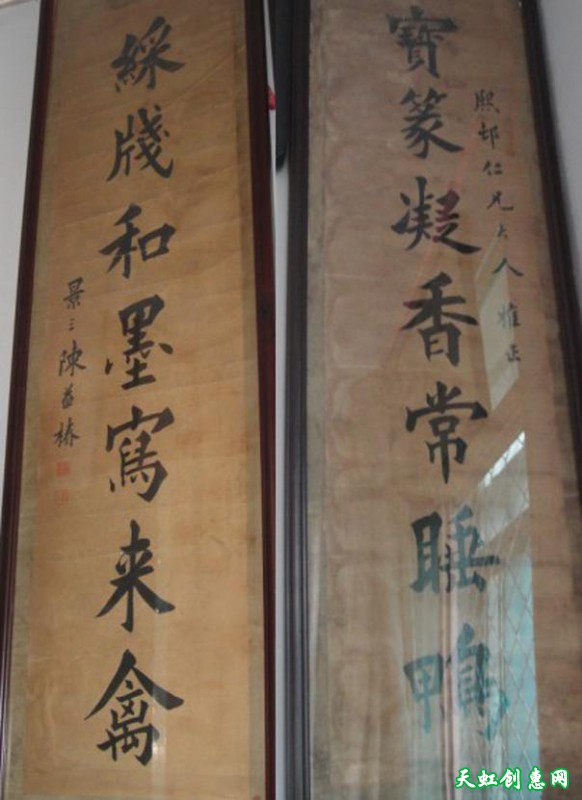 寶篆凝香常睡鴨
熙邨仁兄大人雅正
綵牋和墨寫来禽
景三陳椿
天虹创惠网